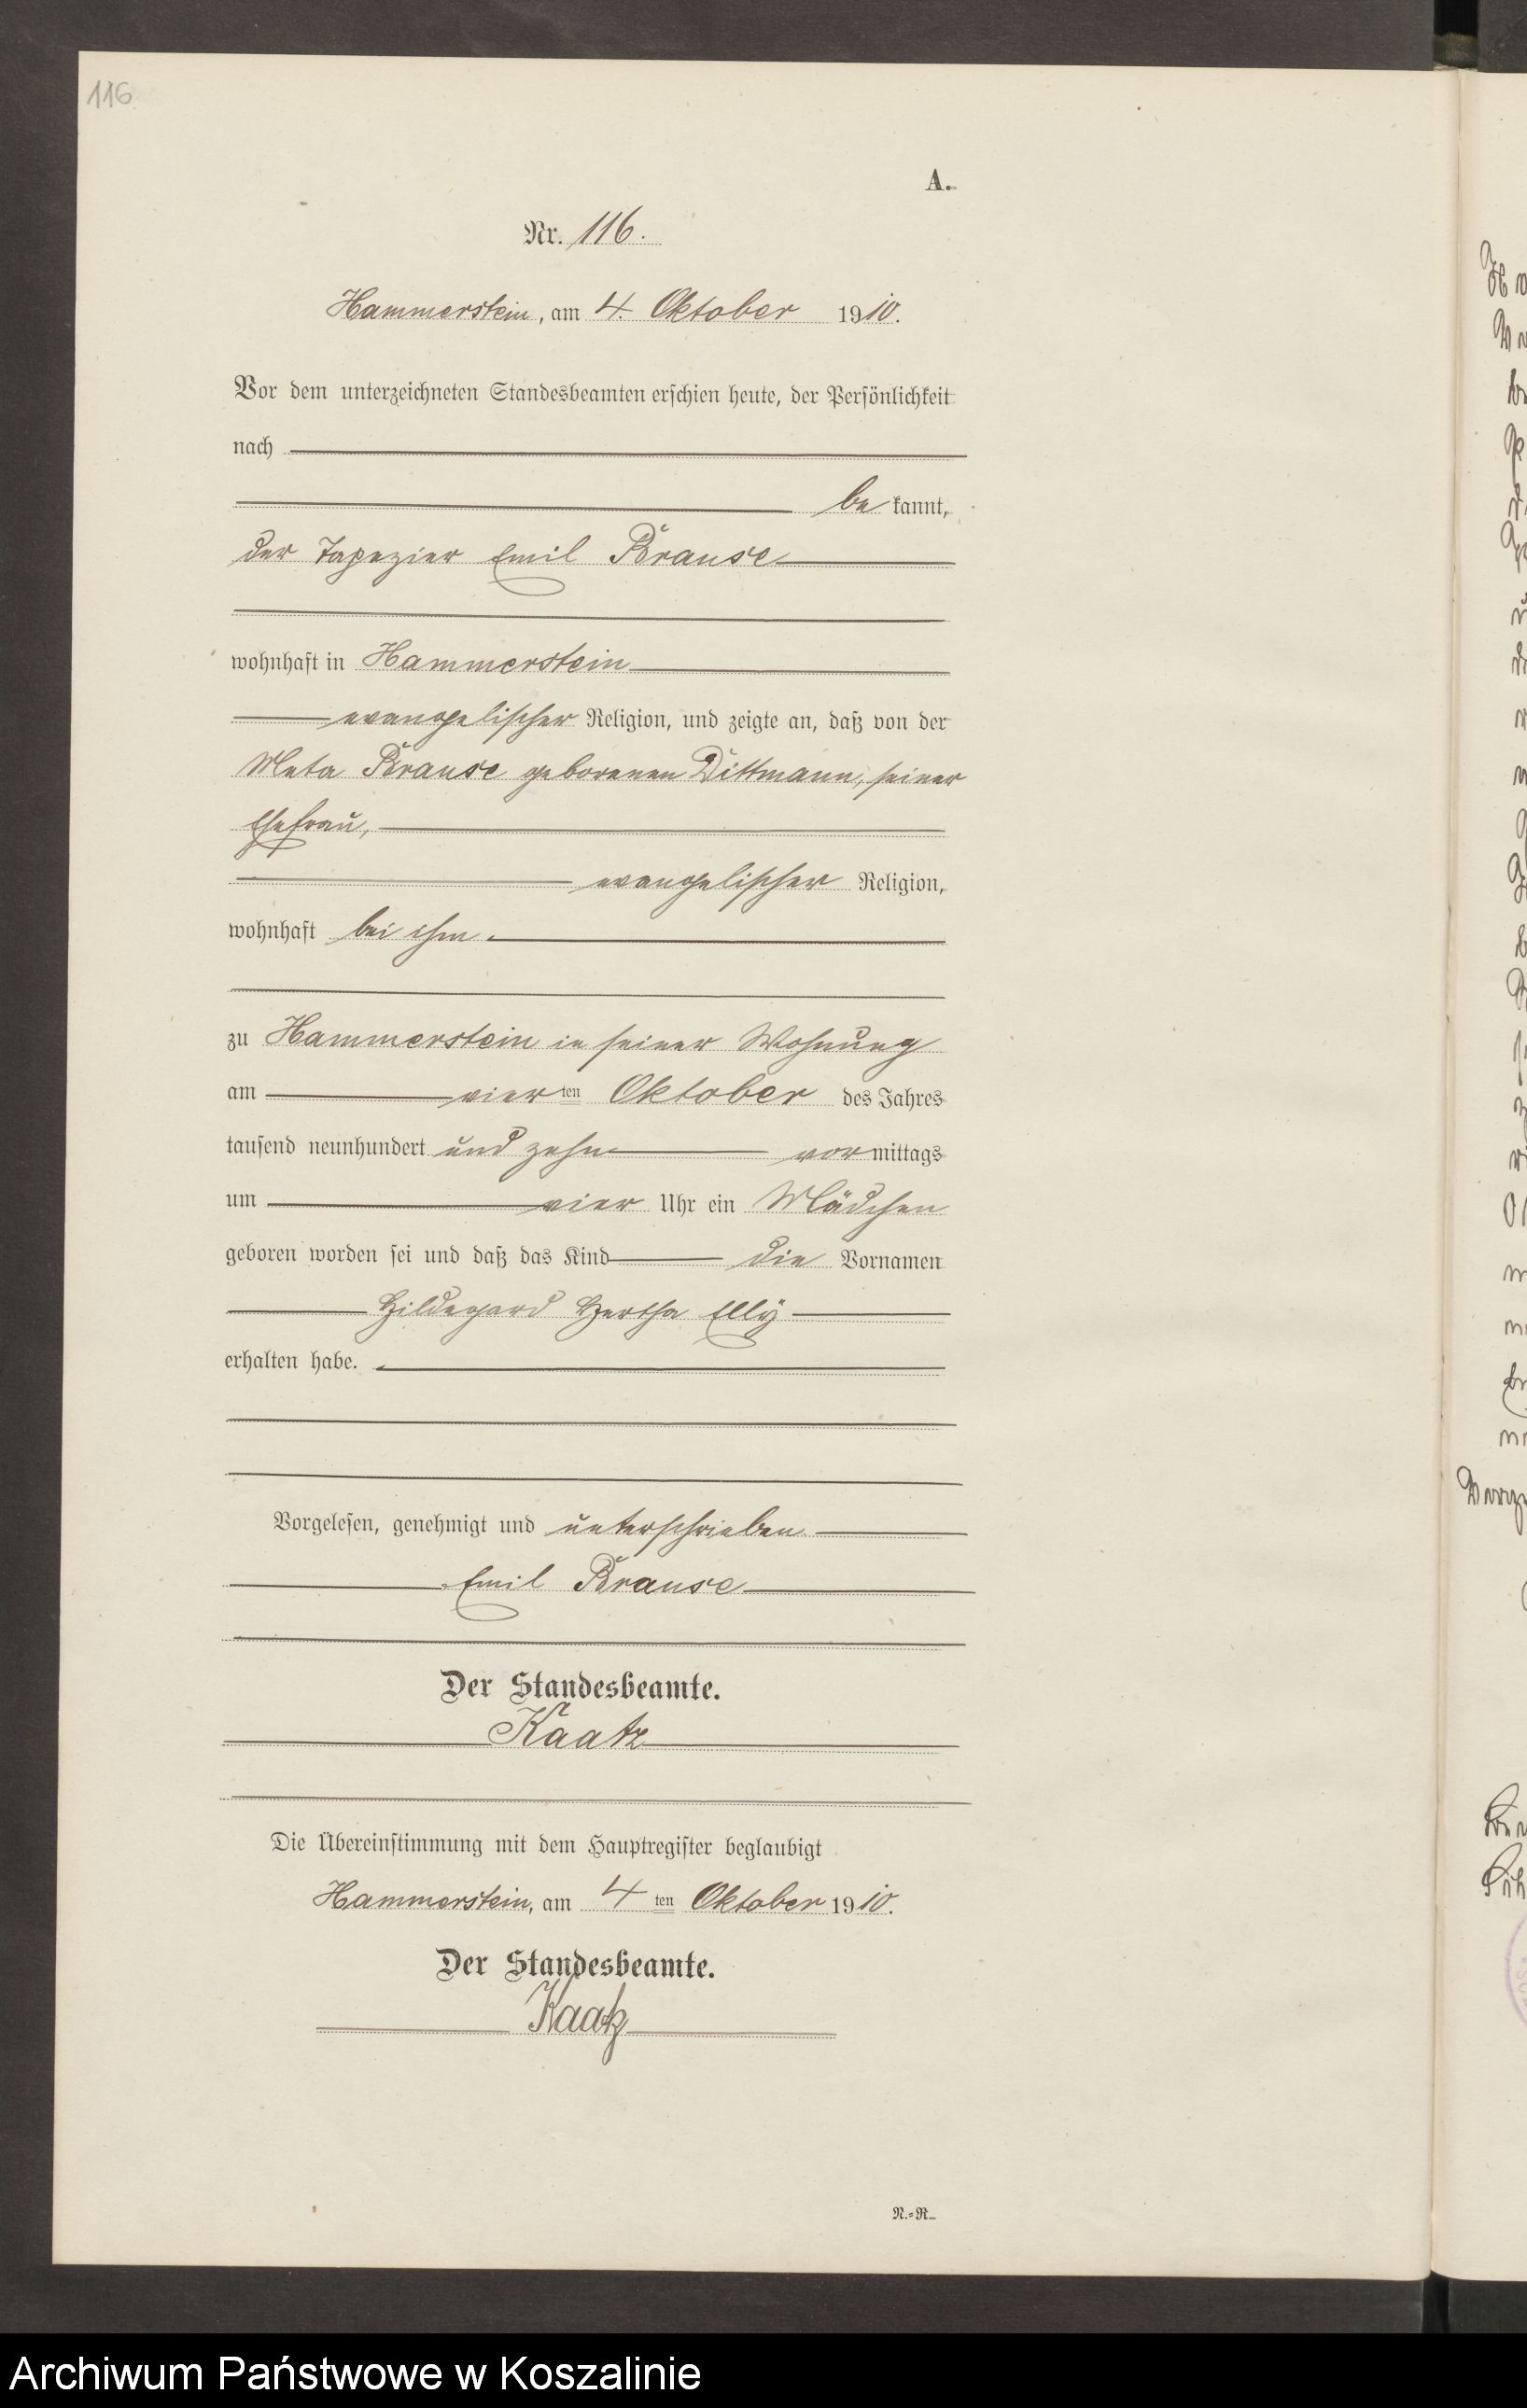 116
A.
Nr. 116.
Hammerstein, am 4. Oktober 1910.
Vor dem unterzeichneten Standesbeamten erschien heute, der Persönlichkeit
nach
be kannt,
der Tapezier Emil Krause
wohnhaft in Hammerstein
evangelischer Religion, und zeigte an, daß von der
Meta Krause geborenen Dittmann, seiner
Ehefrau,
evangelischer Religion,
wohnhaft bei ihm.
zu Hammerstein in seiner Wohnung
am vier ten Oktober des Jahres
tausend neunhundert und zehn vor mittags
um vier Uhr ein Mädchen
geboren worden sei und daß das Kind die Vornamen
Hildegard Hertha Elly
erhalten habe.
Vorgelesen, genehmigt und unterschrieben
Emil Krause
Der Standesbeamte.
Kaatz
Die Übereinstimmung mit dem Hauptregister beglaubigt
Hammerstein, am 4 ten Oktober 1910.
Der Standesbeamte.
Kaatz
N.=R.
Archiwum Państwowe w Koszalinie